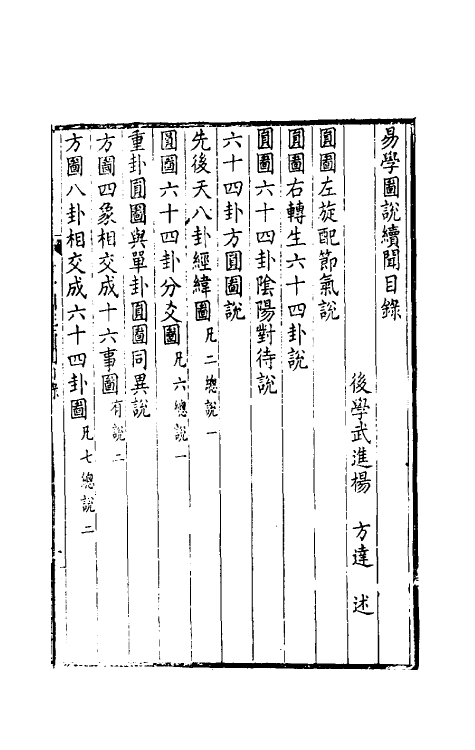 易學圖說續聞目錄
後學武進楊 方達 述
圓圖左旋配節氣說
圓圖右轉生六十四卦說
圓圖六十四卦陰陽對待說
六十四卦方圓圖說
先後天八卦經緯圖凡二總說一
圓圖六十四卦分爻圖凡六總說一
重卦圓圖與單卦圓圖同異說
方圖四象相交成十六事圖有說二
方圖八卦相交成六十四卦圖凡七總說二